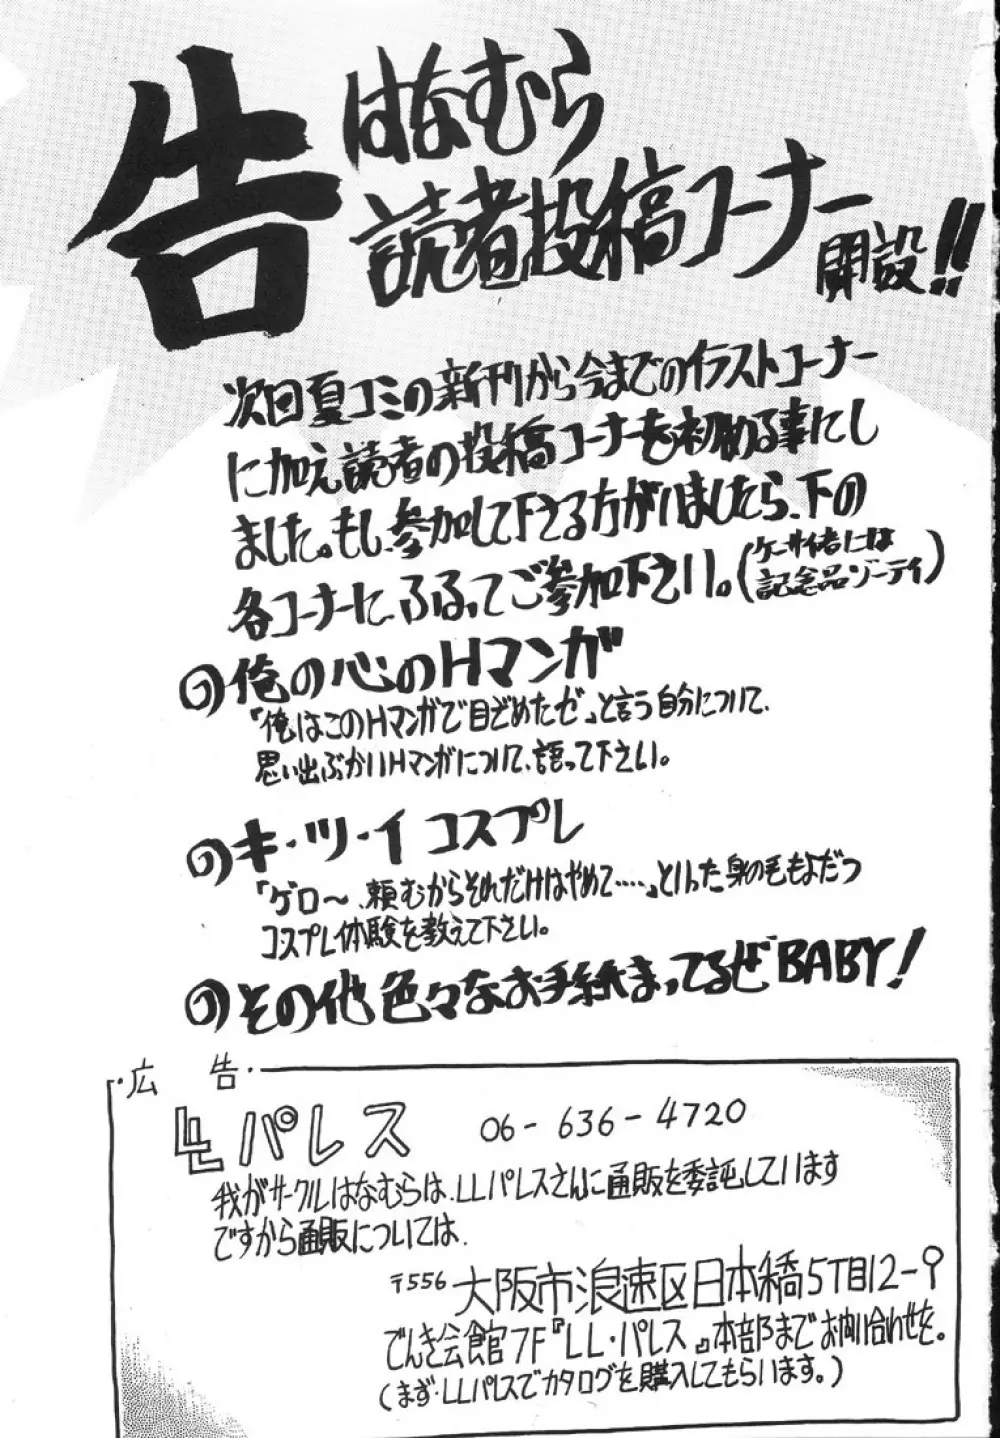 告
はなむら
読者投稿コーナー
開設!!
次回夏コミの新刊から今までのイラストコーナー
に加え読者の投稿コーナーを初める事にし
ました。もし、参加して下さる方がいましたら、下の
各コーナーに、ふるってご参加下さい。(ケーサイ者には
記念品ゾーテイ)
俺の心のHマンガ
「俺はこのHマンガで目ざめたゼ」と言う自分について、
思い出ぶかいHマンガについて、語って下さい。
キ・ツ・イ コスプレ
「ゲロ〜、頼むからそれだけはやめて・・・・・」といった身の毛もよだつ
コスプレ体験を教えて下さい。
その他色々なお手紙まってるぜBABY!
・広 告・
LLパレス 06-636-4720
我がサークルはなむらは、LLパレスさんに通販を委託しています
ですから通販については、
〒556 大阪市浪速区日本橋5丁目12-9
でんき会館7F『LL・パレス』本部までお向い合わせを。
(まず・LLパレスでカタログを購入してもらいます。)